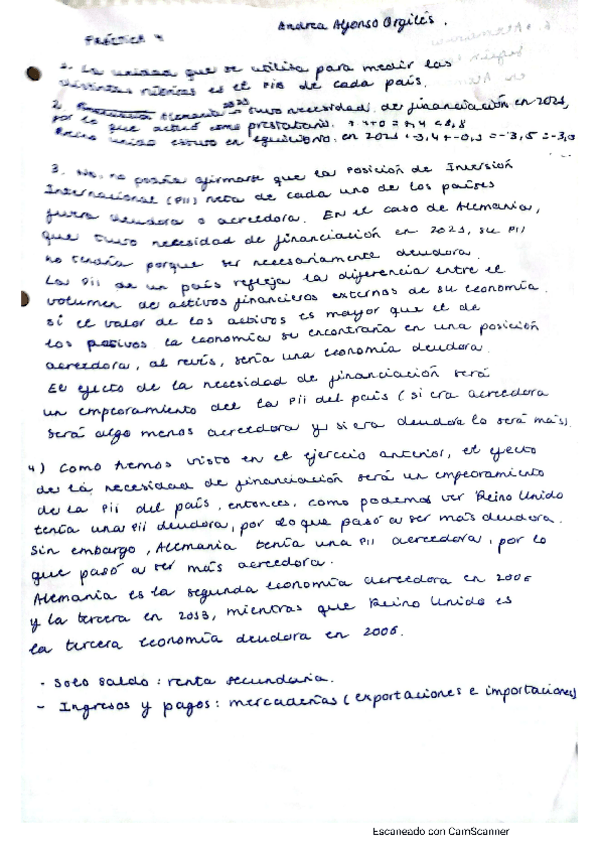 Andrea Alfonso Orgilés.
PRÁCTICA 4
1. La unidad que se utiliza para medir las
distintas rúbricas es el PIB de cada país.
2. Alemania tuvo necesidad de financiación en 2021,
por lo que actuó como prestatario.
Reino Unido estuvo en equilibrio en 2021
3. No, no podría afirmarse que la Posición de Inversión
Internacional (PII) neta de cada uno de los países
fuera deudora o acreedora. En el caso de Alemania,
que tuvo necesidad de financiación en 2021, su PII
no tendría porque ser necesariamente deudora.
La PII de un país refleja la diferencia entre el
volumen de activos financieros externos de su economía.
si el valor de los activos es mayor que el de
los pasivos la economía se encontraría en una posición
acreedora, al revés, sería una economía deudora.
El efecto de la necesidad de financiación será
un empeoramiento del la PII del país (si era acreedora
será algo menos acreedora y si era deudora lo será más).
4) Como hemos visto en el ejercicio anterior, el efecto
de la necesidad de financiación será un empeoramiento
de la PII del país, entonces, como podemos ver Reino Unido
tenía una PII deudora, por lo que pasó a ser más deudora.
Sin embargo, Alemania tenía una PII acreedora, por lo
que pasó a ser más acreedora.
Alemania es la segunda economía acreedora en 2006
y la tercera en 2013, mientras que Reino Unido es
la tercera economía deudora en 2006.
- Solo saldo: renta secundaria.
- Ingresos y pagos: mercaderías (exportaciones e importaciones)
Escaneado con CamScanner